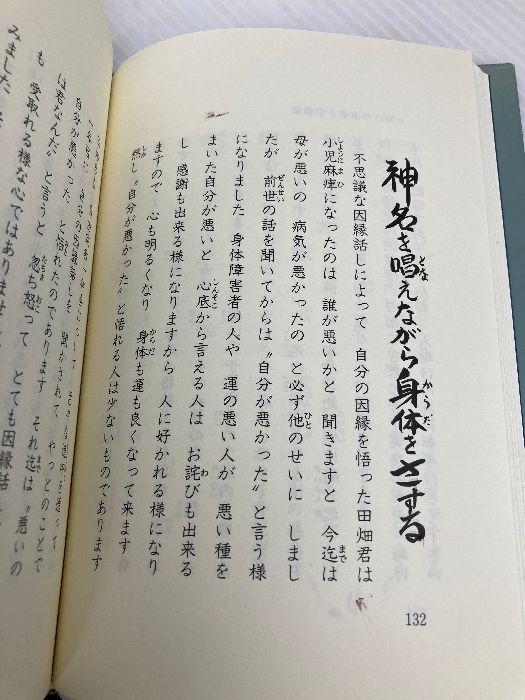 神名を唱えながら身体をさする
不思議な因縁話しによって 自分の因縁を悟った田畑君は
小児麻痺になったのは 誰が悪いかと 聞きますと 今迄は
母が悪いの 病気が悪かったの と必ず他のせいに しまし
たが 前世の話を聞いてからは〝自分が悪かった〟と言う様
になりました 身体障害者の人や 運の悪い人が 悪い種を
まいた自分が悪いと 心底から言える人は お詫びも出来る
し 感謝も出来る様になりますから 人に好かれる様になり
ますので 心も明るくなり 身体も運も良くなって来ます
然し〝自分が悪かった〟と悟れる人は少ないものであります
132
聞かされて やっとのことで
自分が悪かった と悟れたのであります それ迄は〝悪いの
は君なんだ〟と言うと 忽ち怒って とても因縁話
も 受取れる様な心ではありませ
みました